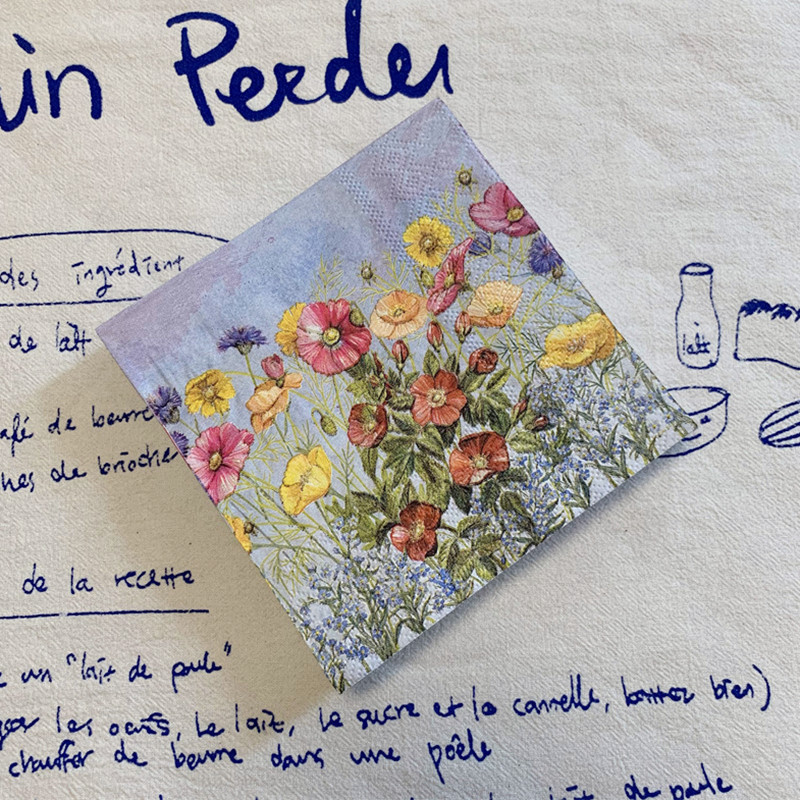 in Perdu
des ingrédient
de lait
lait
afé de beurre
hes de brioche
de la recette
un "lait de poule"
les oeufs, le lait, le sucre et la cannelle, battez bien)
chauffer de beurre dans une poêle
de poule